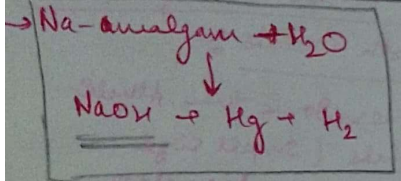 → Na-amalgam + H2O
↓
NaOH + Hg + H2